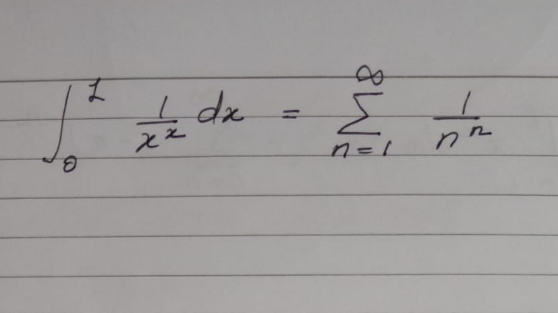 ∫₀¹ 1/xˣ dx = ∑ₙ₌₁^∞ 1/nⁿ